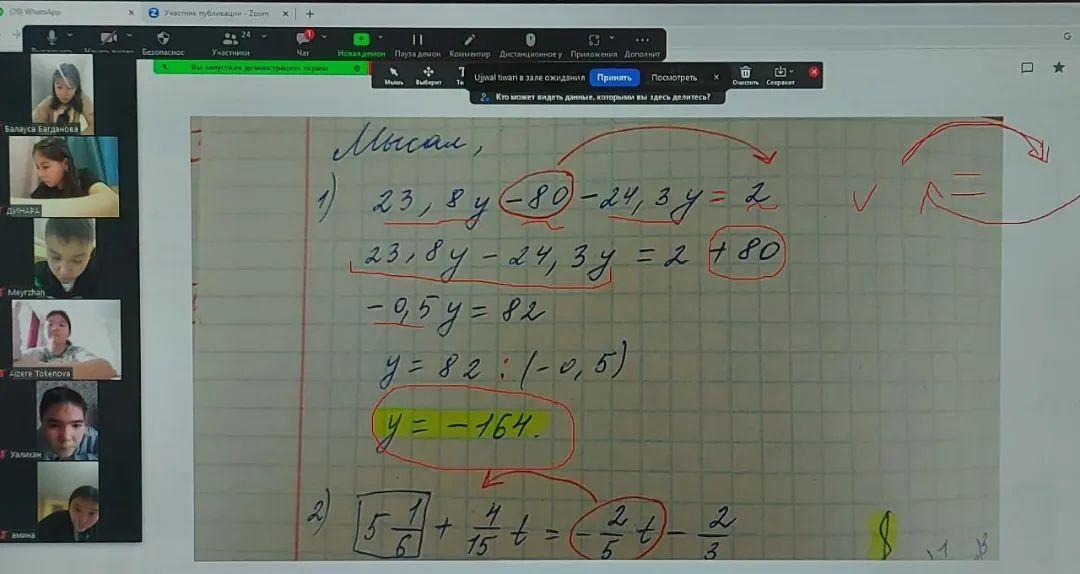 (29) WhatsApp
Участник публикации - Zoom
Безопаснос
Участники
24
Чат
1
Новая демон
Пауза демон
Комментир
Дистанционное у
Приложения
Дополнит
Вы запустили демонстрацию экрана
Мышь
Выберит
Ujjwal tiwari в зале ожидания
Принять
Посмотреть
Очистить
Сохранит
Кто может видеть данные, которыми вы здесь делитесь?
Балауса Багданова
ДИНАРА
Meyrzhan
Aizere Tokenova
Уалихан
амина
Мысал,
1) 23,8y - 80 - 24,3y = 2
23,8y - 24,3y = 2 + 80
-0,5y = 82
y = 82 : (-0,5)
y = -164.
2) 5 1/6 + 4/15 t = - 2/5 t - 2/3